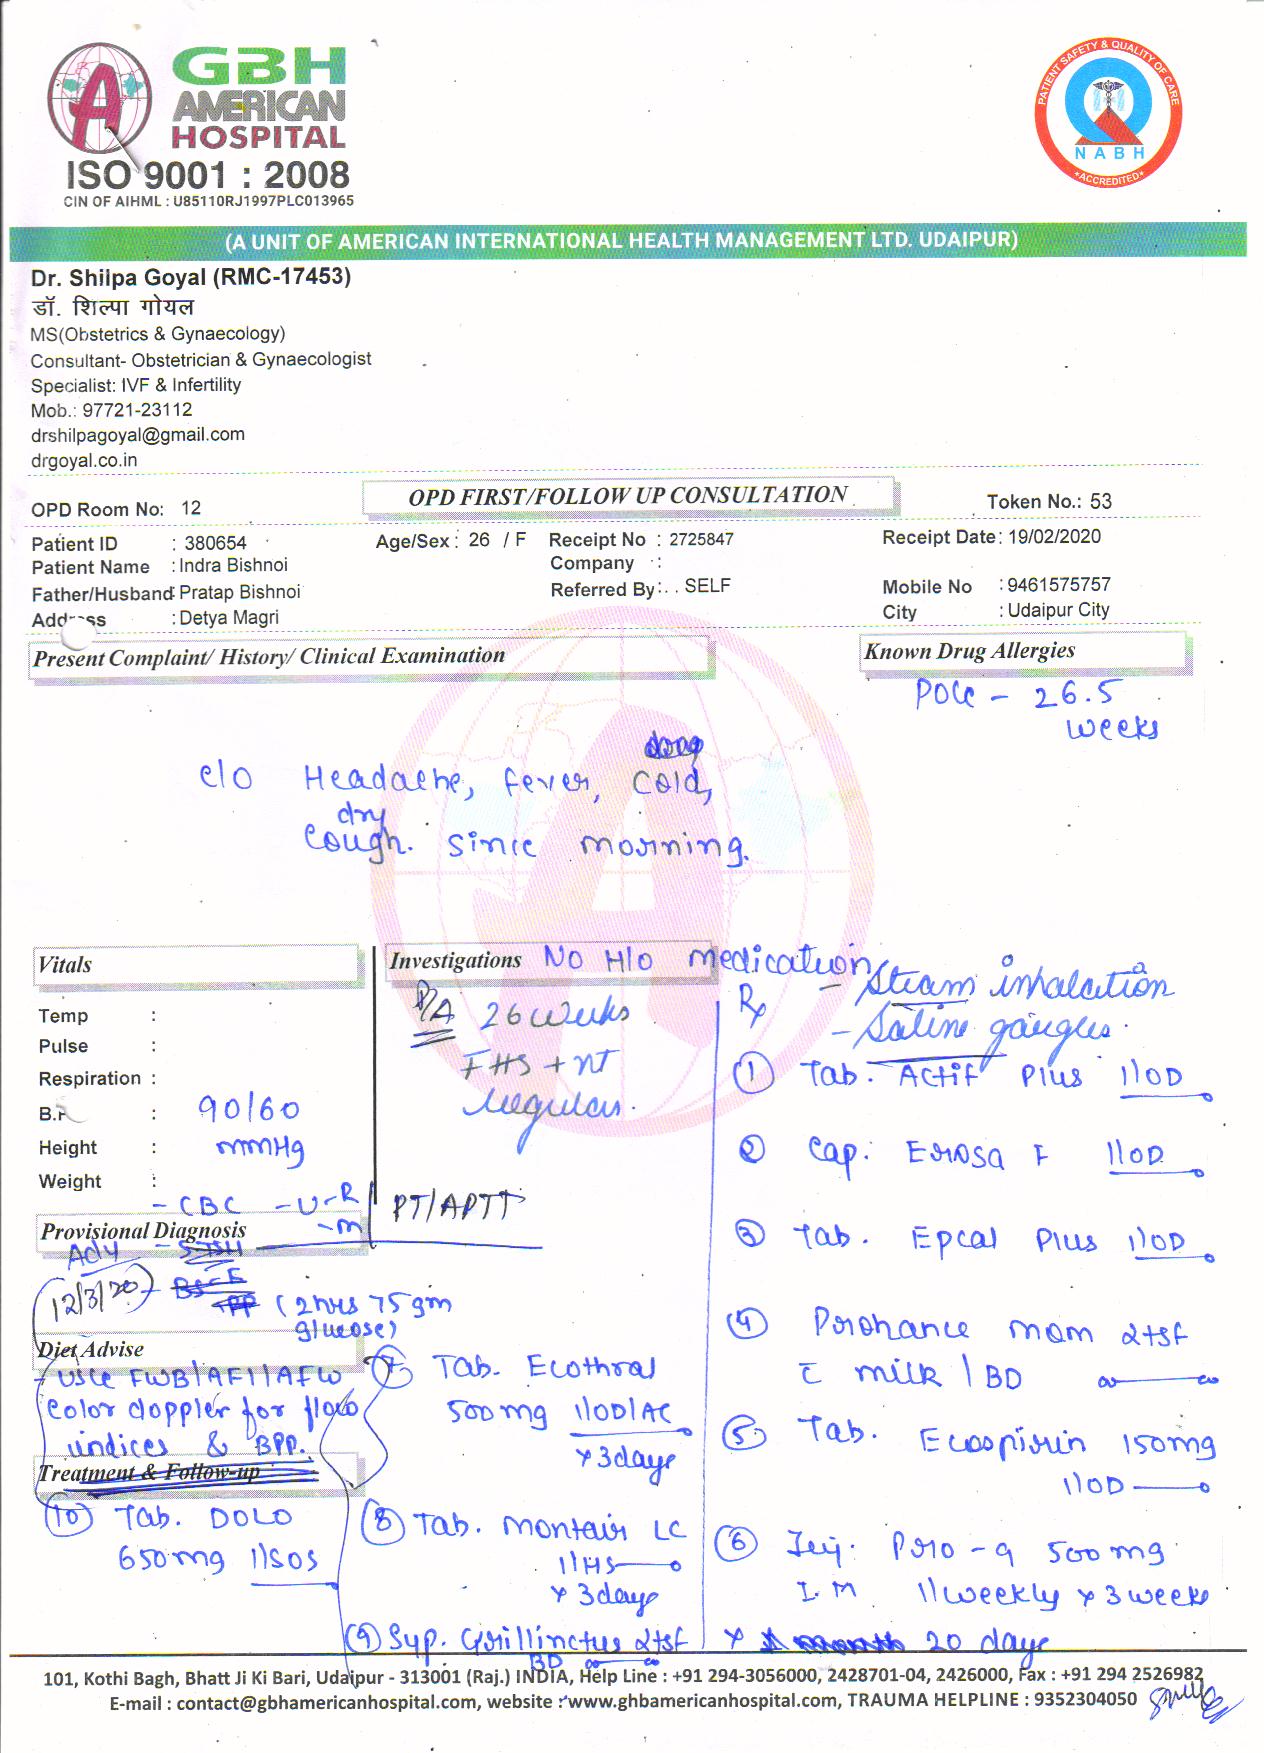 GBH
AMERICAN
HOSPITAL
ISO 9001 : 2008
CIN OF AIHML : U85110RJ1997PLC013965
PATIENT SAFETY & QUALITY OF CARE
NABH
ACCREDITED
(A UNIT OF AMERICAN INTERNATIONAL HEALTH MANAGEMENT LTD. UDAIPUR)
Dr. Shilpa Goyal (RMC-17453)
डॉ. शिल्पा गोयल
MS(Obstetrics & Gynaecology)
Consultant- Obstetrician & Gynaecologist
Specialist: IVF & Infertility
Mob.: 97721-23112
drshilpagoyal@gmail.com
drgoyal.co.in
OPD Room No: 12 OPD FIRST/FOLLOW UP CONSULTATION Token No.: 53
Patient ID : 380654 Age/Sex : 26 / F Receipt No : 2725847 Receipt Date: 19/02/2020
Patient Name : Indra Bishnoi Company :
Father/Husband: Pratap Bishnoi Referred By: . . SELF Mobile No : 9461575757
Address : Detya Magri City : Udaipur City
Present Complaint/ History/ Clinical Examination Known Drug Allergies
POG - 26.5
weeks
c/o Headache, fever, cold,
dry
cough. since morning.
Vitals
Temp :
Pulse :
Respiration :
B.P : 90/60
Height : mmHg
Weight :
- CBC - U-R
-M
PT/APTT
Investigations No H/o medication
P/A 26 weeks
FHS + nt
Regular.
Rx - Steam inhalation
- Saline gargles.
① Tab. Actif Plus 1/OD
② Cap. Erosa F 1/OD
③ Tab. Epcal Plus 1/OD
④ Prohance mom 2tsf
c milk / BD
⑤ Tab. Ecospirin 150mg
1/OD
⑥ Inj. Pro-9 500mg
I.M 1/weekly x 3 weeks
x 20 days
Provisional Diagnosis
Adv
12/3/20
(2hrs 75gm
glucose)
Diet Advise
- USG FWB/AFI/AFW
color doppler for flow
indices & BPP.
Treatment & Follow-up
⑦ Tab. Ecothral
500mg 1/OD/AC
x 3days
⑧ Tab. Montair LC
1/HS
x 3days
⑨ Syp. Grillinctus 2tsf
BD
⑩ Tab. DOLO
650mg 1/SOS
101, Kothi Bagh, Bhatt Ji Ki Bari, Udaipur - 313001 (Raj.) INDIA, Help Line : +91 294-3056000, 2428701-04, 2426000, Fax : +91 294 2526982
E-mail : contact@gbhamericanhospital.com, website : www.ghbamericanhospital.com, TRAUMA HELPLINE : 9352304050